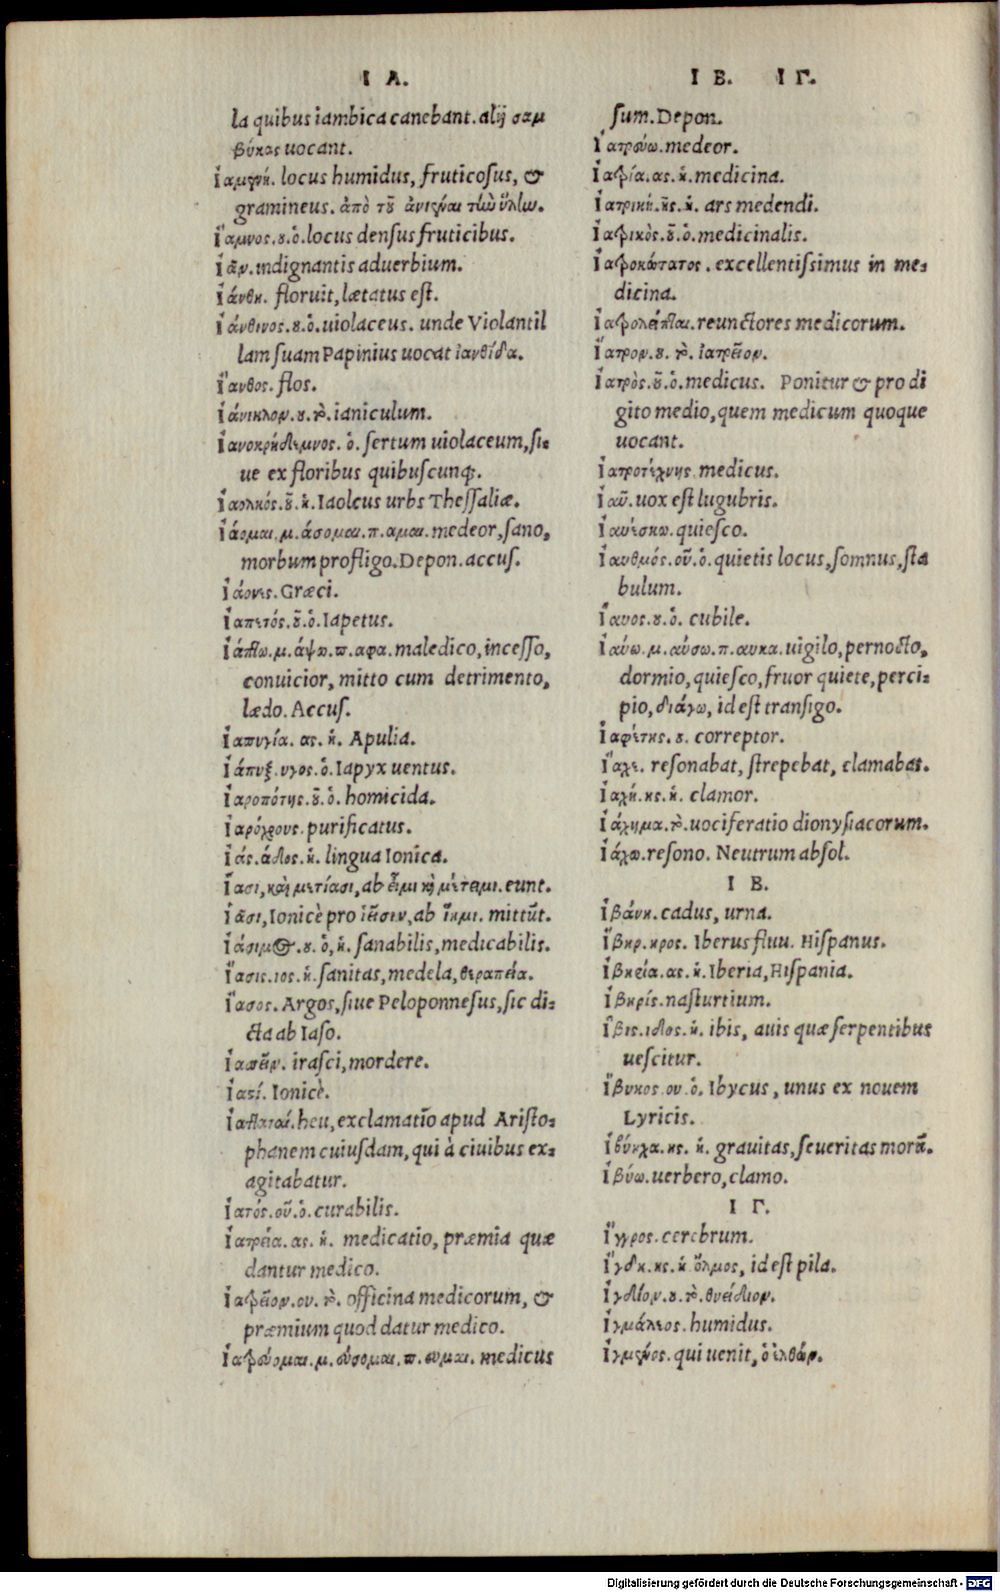 I A.
la quibus iambica canebant. alij σαμ
βύκας uocant.
Ἰαμενή. locus humidus, fruticosus, &
gramineus. ἀπὸ τοῦ ἀνιέναι τὴν ὕλην.
Ἴαμνος.ου.ὁ. locus densus fruticibus.
Ἰᾶν. indignantis aduerbium.
Ἰάνθη. floruit, lætatus est.
Ἰάνθινος.ου.ὁ. uiolaceus. unde Violantil
lam suam Papinius uocat ἰανθίδα.
Ἴανθος. flos.
Ἰάνικλον.ου.τὸ. ianiculum.
Ἰανοκρήδεμνος. ὁ. sertum uiolaceum, si=
ue ex floribus quibuscunq;.
Ἰαολκός.οῦ.ἡ. Iaolcus urbs Thessaliæ.
Ἰάομαι.μ.άσομαι.π.αμαι. medeor, sano,
morbum profligo. Depon. accus.
Ἰάονες. Græci.
Ἰαπετός.οῦ.ὁ. Iapetus.
Ἰάπτω.μ.άψω.π.αφα. maledico, incesso,
conuicior, mitto cum detrimento,
lædo. Accus.
Ἰαπυγία. ας. ἡ. Apulia.
Ἰάπυξ.υγος.ὁ. Iapyx uentus.
Ἰαροπότης.οῦ.ὁ. homicida.
Ἰαρόχρους. purificatus.
Ἰάς.άδος.ἡ. lingua Ionica.
Ἴασι, καὶ μετίασι, ab εἶμι καὶ μέτειμι. eunt.
Ἰᾶσι, Ionicè pro ἱεῖσιν, ab ἵημι. mittūt.
Ἰάσιμος.ου.ὁ, ἡ. sanabilis, medicabilis.
Ἴασις.ιος.ἡ. sanitas, medela, θεραπεία.
Ἴασος. Argos, siue Peloponnesus, sic di=
cta ab Iaso.
Ἰαπεῖν. irasci, mordere.
Ἰαστί. Ionicè.
Ἰατταταί. heu, exclamatio apud Aristo=
phanem cuiusdam, qui à ciuibus ex=
agitabatur.
Ἰατός.οῦ.ὁ. curabilis.
Ἰατρεία. ας. ἡ. medicatio, præmia quæ
dantur medico.
Ἰατρεῖον.ου. τὸ. officina medicorum, &
præmium quod datur medico.
Ἰατρεύομαι.μ. εύσομαι.π. ευμαι. medicus
I B. I Γ.
sum. Depon.
Ἰατρεύω. medeor.
Ἰατρία.ας.ἡ. medicina.
Ἰατρική.ῆς.ἡ. ars medendi.
Ἰατρικὸς.οῦ.ὁ. medicinalis.
Ἰατρικώτατος. excellentissimus in me=
dicina.
Ἰατρολεῖπται. reunctores medicorum.
Ἴατρον.ου.τὸ. ἰατρεῖον.
Ἰατρὸς.οῦ.ὁ. medicus. Ponitur & pro di
gito medio, quem medicum quoque
uocant.
Ἰατροτέχνης. medicus.
Ἰαῦ. uox est lugubris.
Ἰαυέσκω. quiesco.
Ἰαυθμός.οῦ.ὁ. quietis locus, somnus, sta
bulum.
Ἴαυος.ου.ὁ. cubile.
Ἰαύω.μ.αύσω.π.αυκα. uigilo, pernocto,
dormio, quiesco, fruor quiete, perci=
pio, διάγω, id est transigo.
Ἰαφέτης.ου. correptor.
Ἴαχε. resonabat, strepebat, clamabat.
Ἰαχή.ης.ἡ. clamor.
Ἰάχημα.τὸ. uociferatio dionysiacorum.
Ἰάχω. resono. Neutrum absol.
I B.
Ἰβάνη. cadus, urna.
Ἴβηρ.ηρος. Iberus fluu. Hispanus.
Ἰβηρία.ας.ἡ. Iberia, Hispania.
Ἰβηρίς. nasturtium.
Ἶβις.ιδος.ἡ. ibis, auis quæ serpentibus
uescitur.
Ἴβυκος.ου.ὁ. Ibycus, unus ex nouem
Lyricis.
Ἰβύηχα.ης. ἡ. grauitas, seueritas morū.
Ἰβύω. uerbero, clamo.
I Γ.
Ἴγγρος. cerebrum.
Ἴγδη.ης.ἡ ὅλμος, id est pila.
Ἰγδίον.ου.τὸ. θυείδιον.
Ἰγμάλεος. humidus.
Ἰγμένος. qui uenit, ὁ ἐλθών.
Digitalisierung gefördert durch die Deutsche Forschungsgemeinschaft - DFG